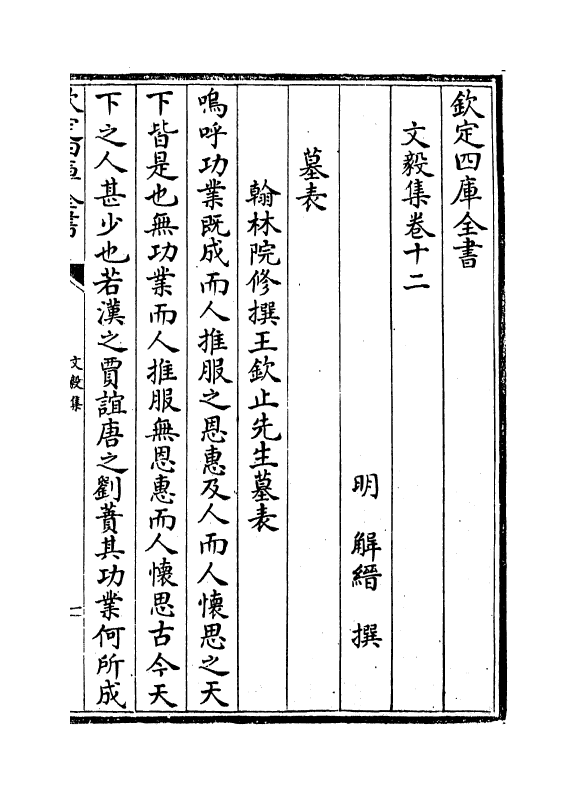 欽定四庫全書
文毅集卷十二
明 解縉 撰
墓表
翰林院修撰王欽止先生墓表
嗚呼功業既成而人推服之恩惠及人而人懷思之天
下皆是也無功業而人推服無恩惠而人懷思古今天
下之人甚少也若漢之賈誼唐之劉蕡其功業何所成
欽定四庫全書
文毅集
一